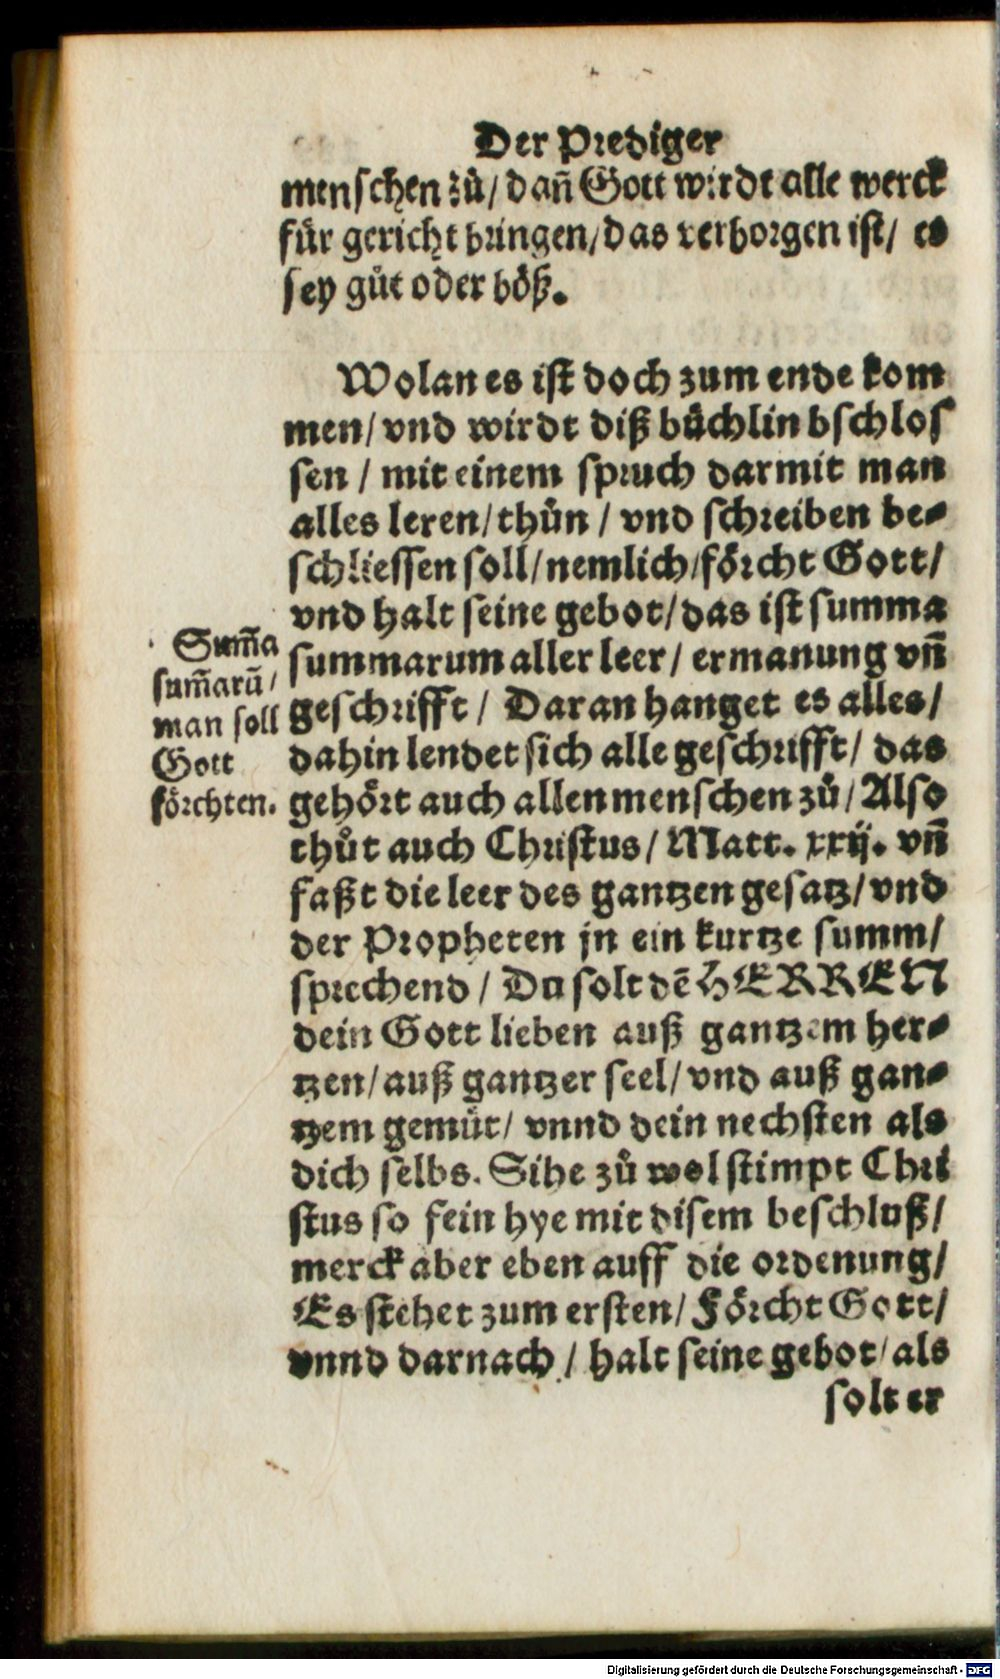 Der Prediger
menschen zů/ dañ Gott wirdt alle werck
für gericht bringen/ das verborgen ist/ es
sey gůt oder böß.
Wolan es ist doch zum ende kom
men/ vnd wirdt diß bůchlin bschlos
sen / mit einem spruch darmit man
alles leren/ thůn / vnd schreiben be-
schliessen soll/ nemlich/ förcht Gott/
vnd halt seine gebot/ das ist summa
summarum aller leer/ ermanung vñ
geschrifft / Daran hanget es alles/
dahin lendet sich alle geschrifft/ das
gehört auch allen menschen zů/ Also
thůt auch Christus/ Matt. xxij. vñ
faßt die leer des gantzen gesatz/ vnd
der Propheten jn ein kurtze summ/
sprechend / Du solt dē HERREN
dein Gott lieben auß gantzem her-
tzen/ auß gantzer seel/ vnd auß gan-
tzem gemüt/ vnnd dein nechsten als
dich selbs. Sihe zů wol stimpt Chri
stus so fein hye mit disem beschluß/
merck aber eben auff die ordenung/
Es stehet zum ersten/ Förcht Gott/
vnnd darnach / halt seine gebot/ als
solt er
Sum̄a
sum̄arū/
man soll
Gott
förchten.
Digitalisierung gefördert durch die Deutsche Forschungsgemeinschaft - DFG